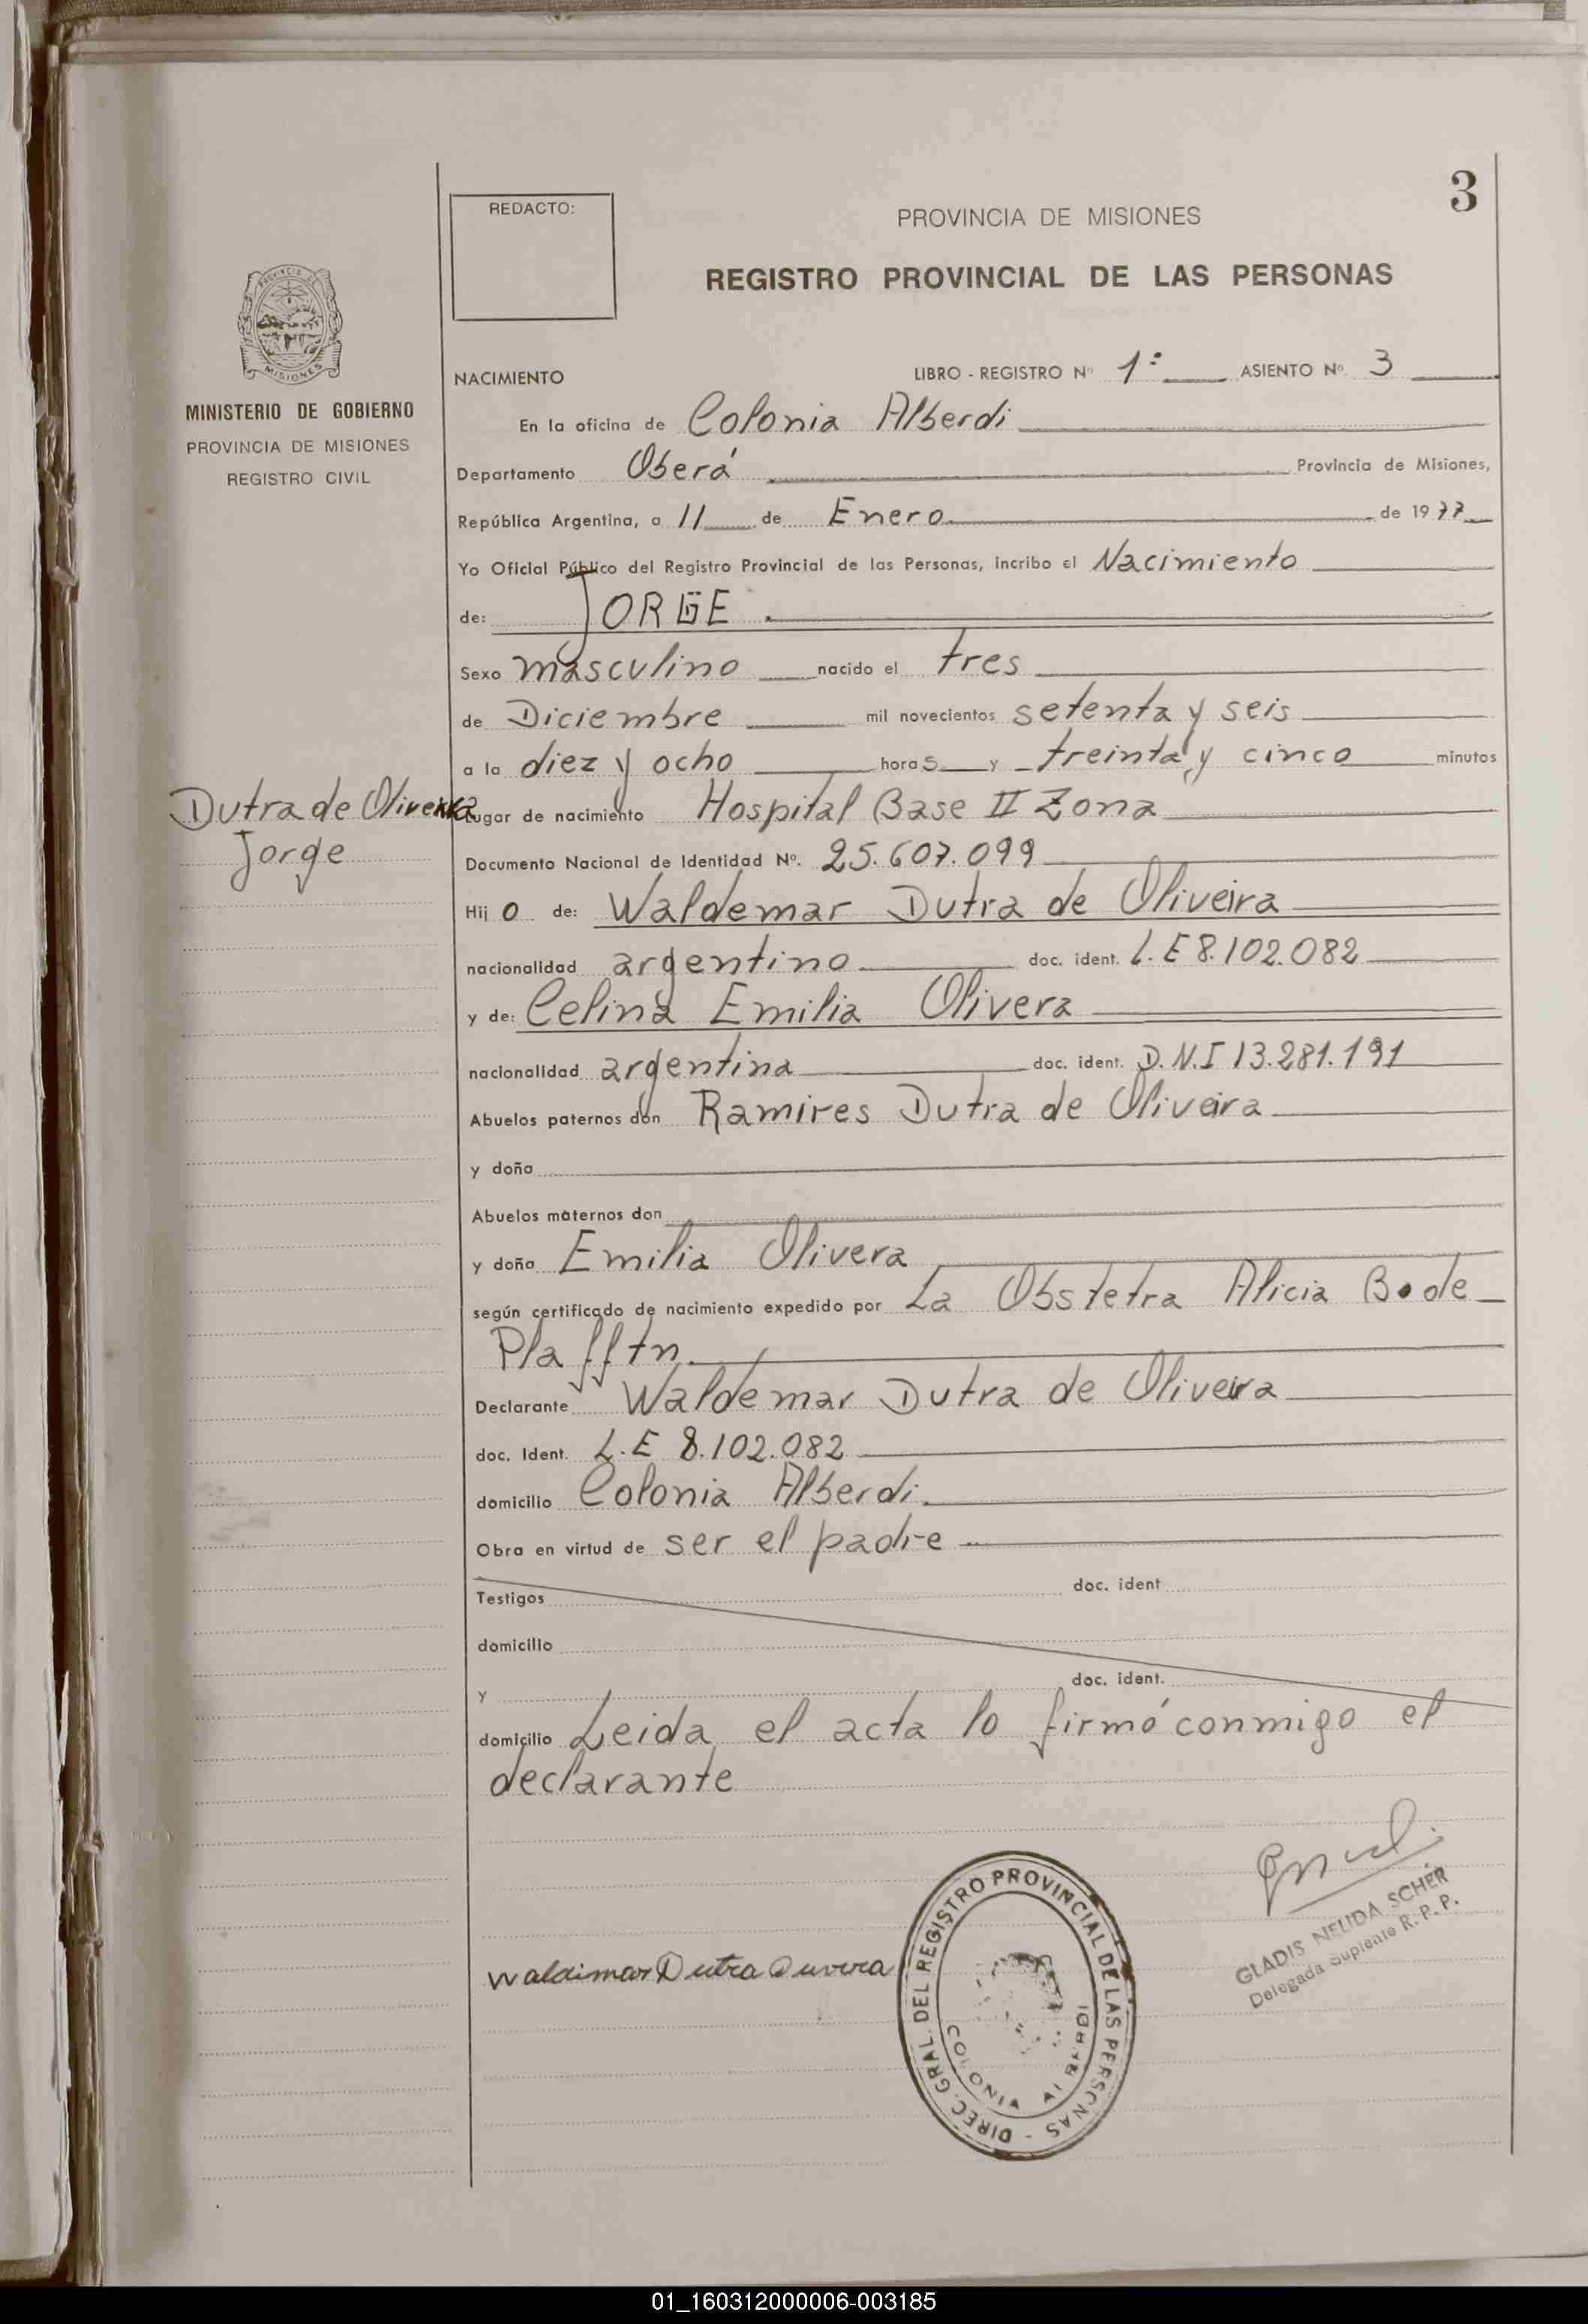 3
REDACTO:
PROVINCIA DE MISIONES
REGISTRO PROVINCIAL DE LAS PERSONAS
PROVINCIA DE
MISIONES
MINISTERIO DE GOBIERNO
PROVINCIA DE MISIONES
REGISTRO CIVIL
NACIMIENTO LIBRO - REGISTRO Nº 1º ASIENTO Nº 3
En la oficina de Colonia Alberdi
Departamento Oberá Provincia de Misiones,
República Argentina, a 11 de Enero de 1977
Yo Oficial Público del Registro Provincial de las Personas, incribo el Nacimiento
de: JORGE.
Sexo masculino nacido el tres
de Diciembre mil novecientos setenta y seis
a la diez y ocho horas y treinta y cinco minutos
Dutra de Oliveira
Jorge
Lugar de nacimiento Hospital Base II Zona
Documento Nacional de Identidad Nº. 25.607.099
Hijo de: Waldemar Dutra de Oliveira
nacionalidad argentino doc. ident. L.E 8.102.082
y de: Celina Emilia Olivera
nacionalidad argentina doc. ident. D.N.I 13.281.191
Abuelos paternos don Ramires Dutra de Oliveira
y doña
Abuelos maternos don
y doña Emilia Olivera
según certificado de nacimiento expedido por La Obstetra Alicia Bode
Plafftn.
Declarante Waldemar Dutra de Oliveira
doc. Ident. L.E 8.102.082
domicilio Colonia Alberdi.
Obra en virtud de ser el padre
Testigos doc. ident
domicilio
y doc. ident.
domicilio Leida el acta lo firmó conmigo el
declarante
Waldimar Dutra
DIREC. GRAL. DEL REGISTRO PROVINCIAL DE LAS PERSONAS -
COLONIA ALBERDI
GLADIS NELIDA SCHER
Delegada Suplente R.P.P.
01_160312000006-003185